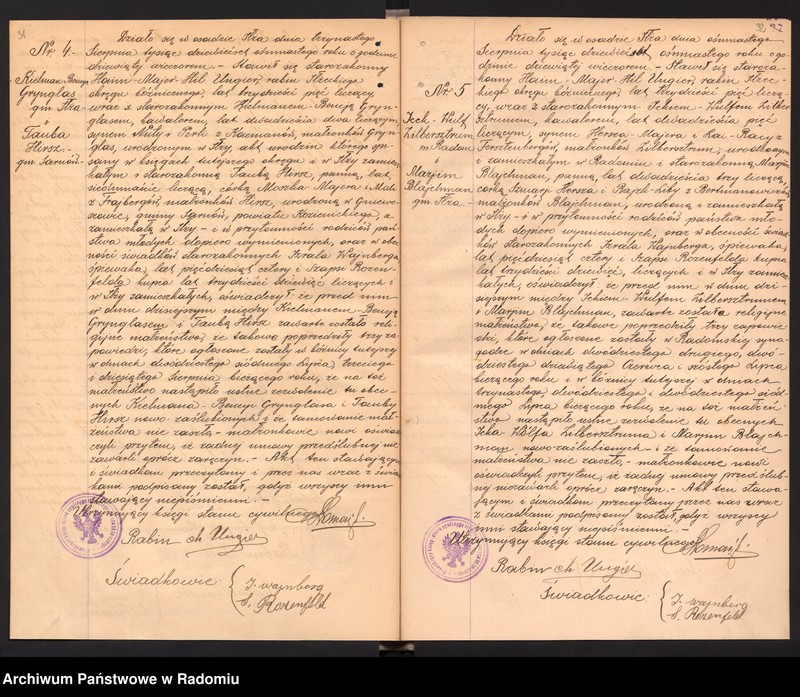 31
Nr. 4.-
Kielman-Bencyj
Grynglas
gm. Iłża
i
Tauba
Hirsz-
gm. Sarnów.-
Działo się w osadzie Iłża dnia trzynastego
Sierpnia tysiąc dziewięćset ośmnastego roku o godzinie
dziewiątej wieczorem.- Stawił się starozakonny
Haim-Majer-Hil Ungier, rabin Iłżeckiego
okręgu bóżniczego, lat trzydzieści pięć liczący,
wraz z starozakonnym Kielmanem-Bencyją Gryn-
glasem, kawalerem, lat dwadzieścia dwa liczącym,
synem i Perli z małżonków Gryn-
glas, urodzonym w Iłży, akt urodzin którego spi-
sany w księgach tutejszego okręgu i w Iłży zamiesz-
kałym i starozakonną Taubą Hirsz, panną, lat
siedmnaście liczącą, córką Moszka Majera i
z Frajbergów, małżonków Hirsz, urodzoną w Gniewo-
szowie, gminy Sarnów, powiatu Kozienickiego, a
zamieszkałą w Iłży - i w przytomności rodziców pań-
stwa młodych dopiero wymienionych, oraz w obec-
ności świadków starozakonnych Izraela Wajnberga,
śpiewaka, lat pięćdziesiąt cztery i Szapsi Rozen-
felda kupca lat trzydzieści dziewięć liczących i
w Iłży zamieszkałych, oświadczył: że przed nim
w dniu dzisiejszym między Kielmanem-Bencyją
Grynglasem i Taubą Hirsz zawarte zostało reli-
gijne małżeństwo, że takowe poprzedziły trzy za-
powiedzi, które ogłoszone zostały w bóżnicy tutejszej
w dniach dwudziestego siódmego Lipca, trzeciego
i dziesiątego Sierpnia bieżącego roku, że na toż
małżeństwo nastąpiło ustne zezwolenie tu obec-
nych Kielmana-Bencyi Grynglasa i Tauby
Hirsz nowo-zaślubionych i że tamowanie mał-
żeństwa nie zaszło - małżonkowie nowi oświad-
czyli przytem, iż żadnej umowy przedślubnej nie
zawarli oprócz zaręczyn.- Akt ten stawającym
i świadkom przeczytany i przez nas wraz z świad-
kami podpisany został, gdyż wszyscy inni
stawający niepiśmienni.-
Utrzymujący księgi stanu cywilnego:
Rabin Ch Ungier
Świadkowie:
J. Wajnberg
S. Rozenfeld
32
Nr 5
Icek-Wulf
Zelbersztrum
m. Radom
i
Marjem
Blajchman
gm. Iłża.-
Działo się w osadzie Iłża dnia ośmnastego
Sierpnia tysiąc dziewięćset ośmnastego roku o go-
dzinie dziewiątej wieczorem.- Stawił się staroza-
konny Haim-Majer-Hil Ungier, rabin Iłżec-
kiego okręgu bóżniczego, lat trzydzieści pięć liczą-
cy, wraz z starozakonnym Ickiem-Wulfem Zelber-
sztrumem, kawalerem, lat dwadzieścia pięć
liczącym, synem Herszka-Majera i
Fersztenbergów, małżonków Zelbersztrum, urodzonym
i zamieszkałym w Radomiu i starozakonną Marjem
Blajchman, panną, lat dwadzieścia trzy liczącą,
córką Szmary Hersza i Rajzli-Ruby z
małżonków Blajchman, urodzoną i zamieszkałą
w Iłży - i w przytomności rodziców państwa mło-
dych dopiero wymienionych, oraz w obecności świad-
ków starozakonnych Izraela Wajnberga, śpiewaka,
lat pięćdziesiąt cztery i Szapsi Rozenfelda kupca
lat trzydzieści dziewięć, liczących i w Iłży zamiesz-
kałych, oświadczył: że przed nim w dniu dzi-
siejszym między Ickiem-Wulfem Zelbersztrumem
i Marjem Blajchman, zawarte zostało religijne
małżeństwo, że takowe poprzedziły trzy zapowie-
dzi, które ogłoszone zostały w Radomskiej syna-
godze w dniach dwudziestego drugiego, dwu-
dziestego dziewiątego Czerwca i szóstego Lipca
bieżącego roku i w bóżnicy tutejszej w dniach
trzynastego, dwudziestego i dwudziestego siód-
mego Lipca bieżącego roku, że na toż małżeń-
stwo nastąpiło ustne zezwolenie tu obecnych
Icka Wulfa Zelbersztruma i Marjem Blajch-
man nowo-zaślubionych - i że tamowanie
małżeństwa nie zaszło, - małżonkowie nowi
oświadczyli przytem, iż żadnej umowy przedślub-
nej niezawarli oprócz zaręczyn.- Akt ten stawa-
jącym i świadkom przeczytany przez nas wraz
z świadkami podpisany został, gdyż wszyscy
inni stawający niepiśmienni.
Utrzymujący księgi stanu cywilnego:
Rabin Ch Ungier
Świadkowie:
J. Wajnberg
S. Rozenfeld
Archiwum Państwowe w Radomiu